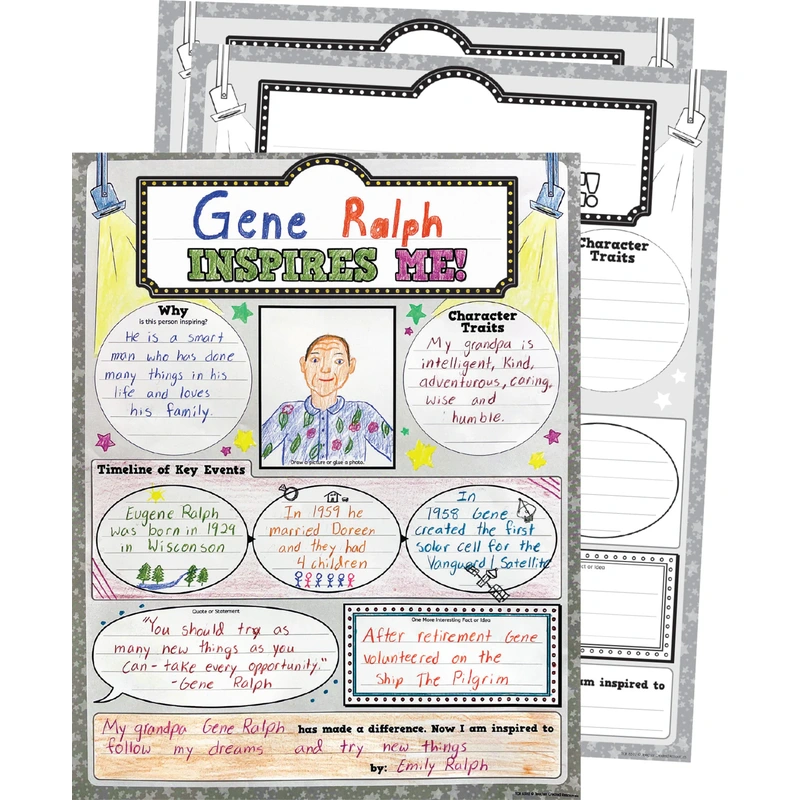 Gene Ralph
INSPIRES ME!
Why
is this person inspiring?
He is a smart
man who has done
many things in his
life and loves
his family.
Draw a picture or glue a photo.
Character
Traits
My grandpa is
intelligent, kind,
adventurous, caring,
wise and
humble.
Timeline of Key Events
Eugene Ralph
was born in 1929
in Wisconson
In 1959 he
married Doreen
and they had
4 children
In
1958 Gene
created the first
solar cell for the
Vanguard 1 Satellite
Quote or Statement
"You should try as
many new things as you
can - take every opportunity."
-Gene Ralph
One More Interesting Fact or Idea
After retirement Gene
volunteered on the
ship The Pilgrim
My grandpa Gene Ralph has made a difference. Now I am inspired to
follow my dreams and try new things
by: Emily Ralph
Character
Traits
Fact or Idea
am inspired to